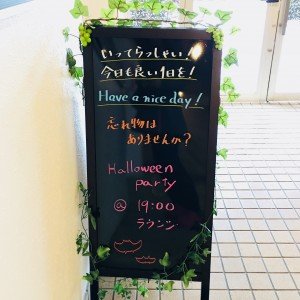 いってらっしゃい！
今日も良い1日を！
Have a nice day!
忘れ物は
ありませんか？
Halloween
party
@ 19:00
ラウンジ